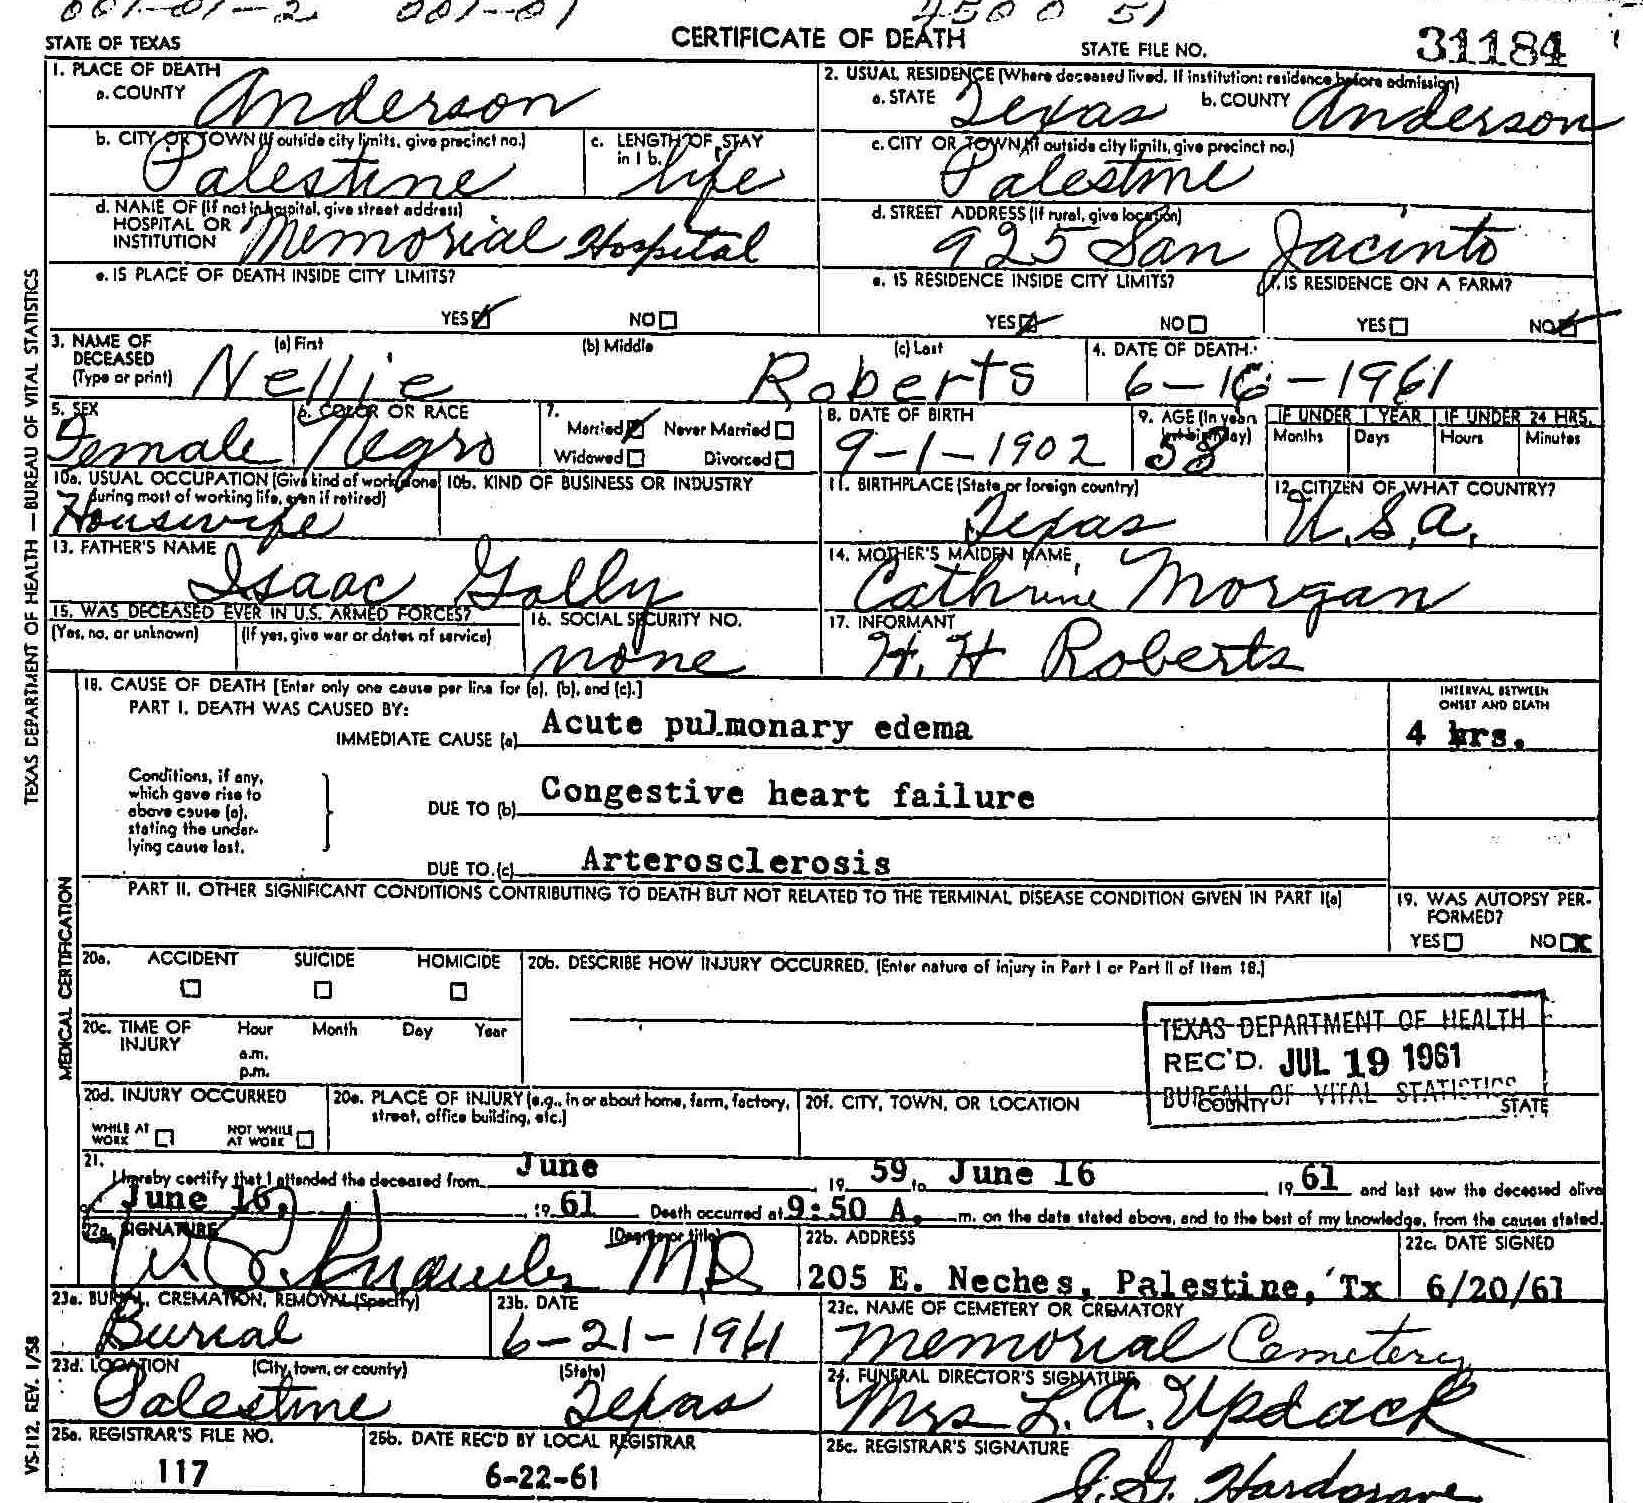 001-01-2 001-01 4500 51
STATE OF TEXAS CERTIFICATE OF DEATH STATE FILE NO. 31184
1. PLACE OF DEATH
a. COUNTY Anderson
2. USUAL RESIDENCE (Where deceased lived. If institution: residence before admission)
a. STATE Texas b. COUNTY Anderson
b. CITY OR TOWN (If outside city limits, give precinct no.) Palestine
c. LENGTH OF STAY in 1 b. life
c. CITY OR TOWN (If outside city limits, give precinct no.) Palestine
d. NAME OF (If not in hospital, give street address)
HOSPITAL OR
INSTITUTION Memorial Hospital
d. STREET ADDRESS (If rural, give location)
925 San Jacinto
e. IS PLACE OF DEATH INSIDE CITY LIMITS?
YES NO
e. IS RESIDENCE INSIDE CITY LIMITS?
YES NO
f. IS RESIDENCE ON A FARM?
YES NO
3. NAME OF DECEASED (Type or print)
(a) First (b) Middle (c) Last
Nellie Roberts
4. DATE OF DEATH
6-16-1961
5. SEX Female
6. COLOR OR RACE Negro
7. Married Never Married
Widowed Divorced
8. DATE OF BIRTH 9-1-1902
9. AGE (In years last birthday) 58
IF UNDER 1 YEAR IF UNDER 24 HRS.
Months Days Hours Minutes
10a. USUAL OCCUPATION (Give kind of work done during most of working life, even if retired) Housewife
10b. KIND OF BUSINESS OR INDUSTRY
11. BIRTHPLACE (State or foreign country) Texas
12. CITIZEN OF WHAT COUNTRY? U.S.A.
13. FATHER'S NAME Isaac Golly
14. MOTHER'S MAIDEN NAME Cathrine Morgan
15. WAS DECEASED EVER IN U.S. ARMED FORCES?
(Yes, no, or unknown) (If yes, give war or dates of service)
16. SOCIAL SECURITY NO. none
17. INFORMANT H. H Roberts
18. CAUSE OF DEATH [Enter only one cause per line for (a), (b), and (c).]
PART I. DEATH WAS CAUSED BY:
IMMEDIATE CAUSE (a) Acute pulmonary edema
INTERVAL BETWEEN ONSET AND DEATH
4 hrs.
Conditions, if any,
which gave rise to
above cause (a),
stating the under-
lying cause last.
DUE TO (b) Congestive heart failure
DUE TO (c) Arterosclerosis
PART II. OTHER SIGNIFICANT CONDITIONS CONTRIBUTING TO DEATH BUT NOT RELATED TO THE TERMINAL DISEASE CONDITION GIVEN IN PART I(a)
19. WAS AUTOPSY PER-
FORMED?
YES NO
20a. ACCIDENT SUICIDE HOMICIDE
20b. DESCRIBE HOW INJURY OCCURRED. (Enter nature of injury in Part I or Part II of Item 18.)
20c. TIME OF INJURY Hour Month Day Year
a.m.
p.m.
TEXAS DEPARTMENT OF HEALTH
REC'D. JUL 19 1961
BUREAU OF VITAL STATISTICS
20d. INJURY OCCURRED
WHILE AT WORK NOT WHILE AT WORK
20e. PLACE OF INJURY (e.g., in or about home, farm, factory, street, office building, etc.)
20f. CITY, TOWN, OR LOCATION COUNTY STATE
21. I hereby certify that I attended the deceased from June 19 59 to June 16 19 61 and last saw the deceased alive
June 16, 19 61 Death occurred at 9:50 A. m. on the date stated above, and to the best of my knowledge, from the causes stated.
22a. SIGNATURE (Degree or title) M.D.
22b. ADDRESS
205 E. Neches, Palestine, Tx
22c. DATE SIGNED
6/20/61
23a. BURIAL, CREMATION, REMOVAL (Specify)
Burial
23b. DATE
6-21-1961
23c. NAME OF CEMETERY OR CREMATORY
Memorial Cemetery
23d. LOCATION (City, town, or county) (State)
Palestine Texas
24. FUNERAL DIRECTOR'S SIGNATURE
Mrs L. A. Updack
25a. REGISTRAR'S FILE NO.
117
25b. DATE REC'D BY LOCAL REGISTRAR
6-22-61
25c. REGISTRAR'S SIGNATURE
Hardgrave
TEXAS DEPARTMENT OF HEALTH — BUREAU OF VITAL STATISTICS
MEDICAL CERTIFICATION
VS-112, REV. 1/58